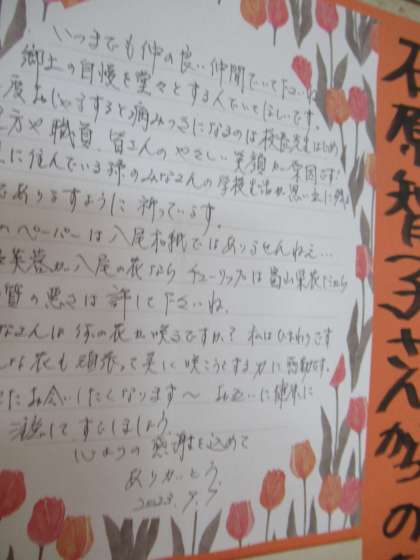 いつまでも仲の良い仲間でいて下さいね
郷土の自慢を堂々とする人でいてほしいです。
度おじゃまするとと病みつきになるのは校長先生はじめ
方や職員、皆さんのやさしい笑顔が原因です!
に住んでいる孫のみなさんの学校生活が思い出に残る
でありますように祈っています。
のペーパーは八尾和紙ではありませんねぇ…
芙蓉が八尾の花なら チューリップは富山県花だから
質の悪さは許して下さいね。
なさんは何の花が咲きますか? 私はひまわりです
な花も頑張って美しく咲こうとする力に感動です。
たお会いしたくなります〜 お互いに健康に
注意してすごしましょう
心よりの感謝を込めて
ありがとう。
2023.9.7
石原智子さんからの